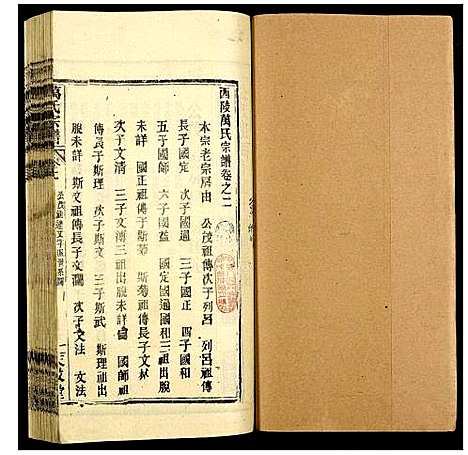 西陵萬氏宗譜卷之二
本宗老宗居由 公茂祖傳次于列呂 列呂祖傳
長子國定 次子國通 三子國正 四子國和
五子國師 國定國通國和三祖出脫
未詳 國正祖傳于斯菊 斯菊祖傳長子文林
次子文清 三子文溥三祖出脫未詳 國師祖
傳長子斯理 次子斯文 三子斯武 斯理祖出
脫未詳 斯文祖傳長子文瀾 次子文法 文法
萬氏宗譜